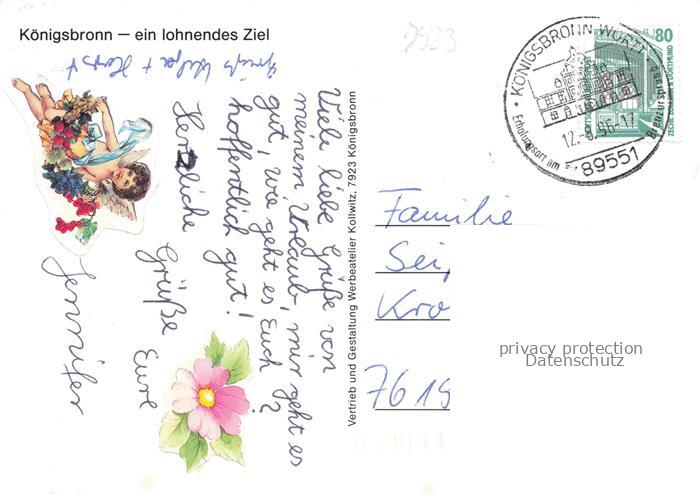 Königsbronn – ein lohnendes Ziel
Viele liebe Grüße von
meinem Urlaub, mir geht es
gut, wie geht es Euch?
hoffentlich gut!
Herzliche Grüße Eure
Jennifer
Vertrieb und Gestaltung Werbeatelier Kollwitz, 7923 Königsbronn
7923
KÖNIGSBRONN WÜRTT
Erholungsort am Brenzursprung
89551
80
Familie
Sei
Kro
7619
privacy protection
Datenschutz